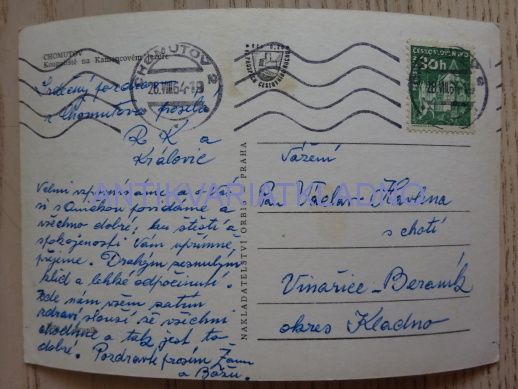 CHOMUTOV
Koupaliště na Kamencovém jezeře
CHOMUTOV 2
28.VIII.64-19
ČESKOSLOVENSKO
30h
Srdečný pozdrav
z Chomutova posílá
R. K. a
Královic
Velmi vzpomínáme a
si s Aničkou povídáme a
všechno dobré, hu štěstí a
spokojenosti Vám upřímně
přejeme. Drahým zesnulým
klid a lehké odpočinutí.
Zde nám všem zatím
zdraví slouží, že všichni
chodíme a tak jest to
dobré. Pozdravte prosím
a Boženu.
NAKLADATELSTVÍ ORBIS, PRAHA
Vážení
Pan Václav Havlena
s chotí
Vinařice-Beraník
okres Kladno
ANTIKVARIATKLADNO